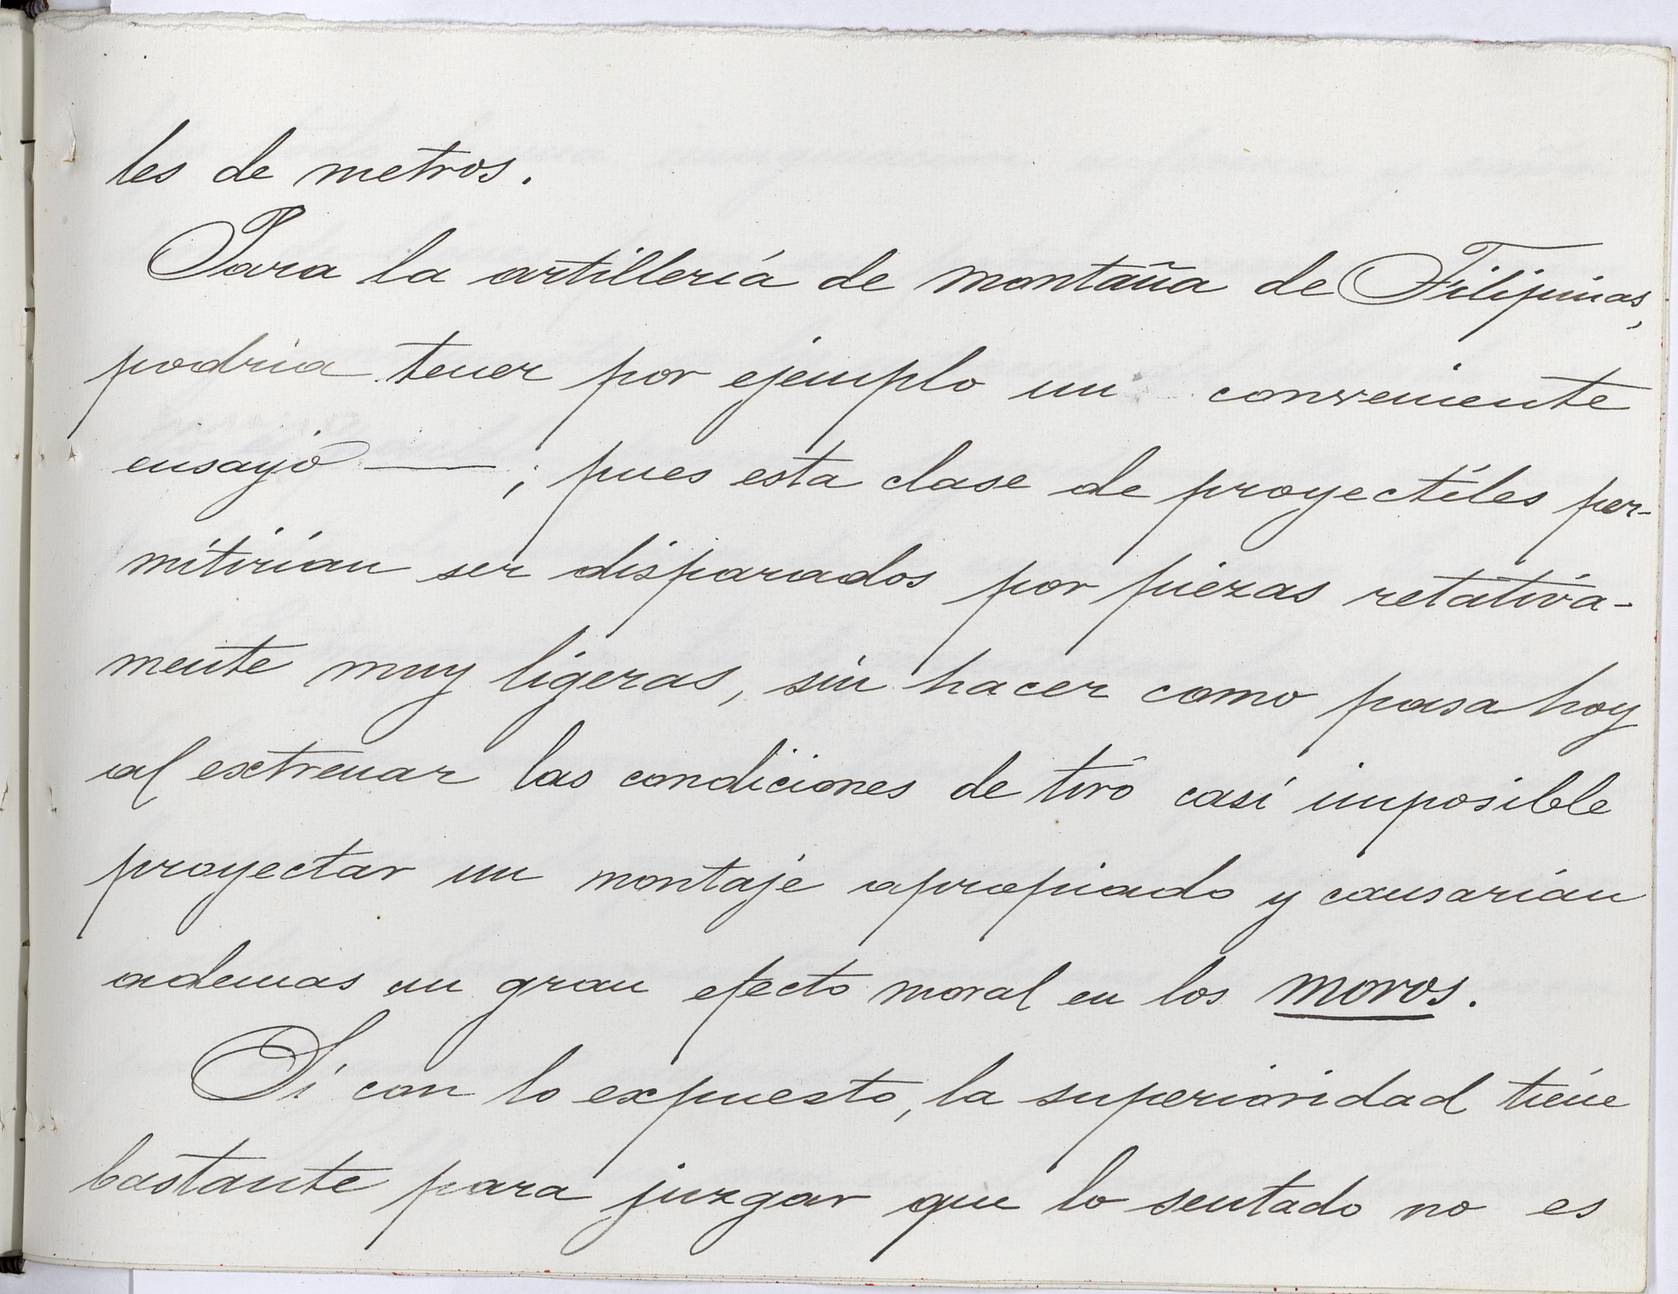 les de metros.
Para la artillería de montaña de Filipinas,
podría tener por ejemplo un conveniente
ensayo ——— ; pues esta clase de proyectiles per-
mitirían ser disparados por piezas relativa-
mente muy ligeras, sin hacer como pasa hoy
al extremar las condiciones de tiro casi imposible
proyectar un montaje apropiado y causarían
ademas un gran efecto moral en los moros.
Si con lo expuesto, la superioridad tiene
bastante para juzgar que lo sentado no es